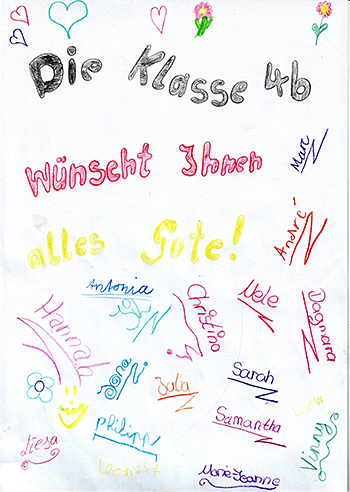 Die Klasse 4b
Wünscht Ihnen
alles Gute!
Marc
André
Antonia
Hannah
Christina
Nele
Dagmara
Jana
Julia
Sarah
Samantha
Liesa
Philipp
Lennart
Marie Jeanne
Vinny